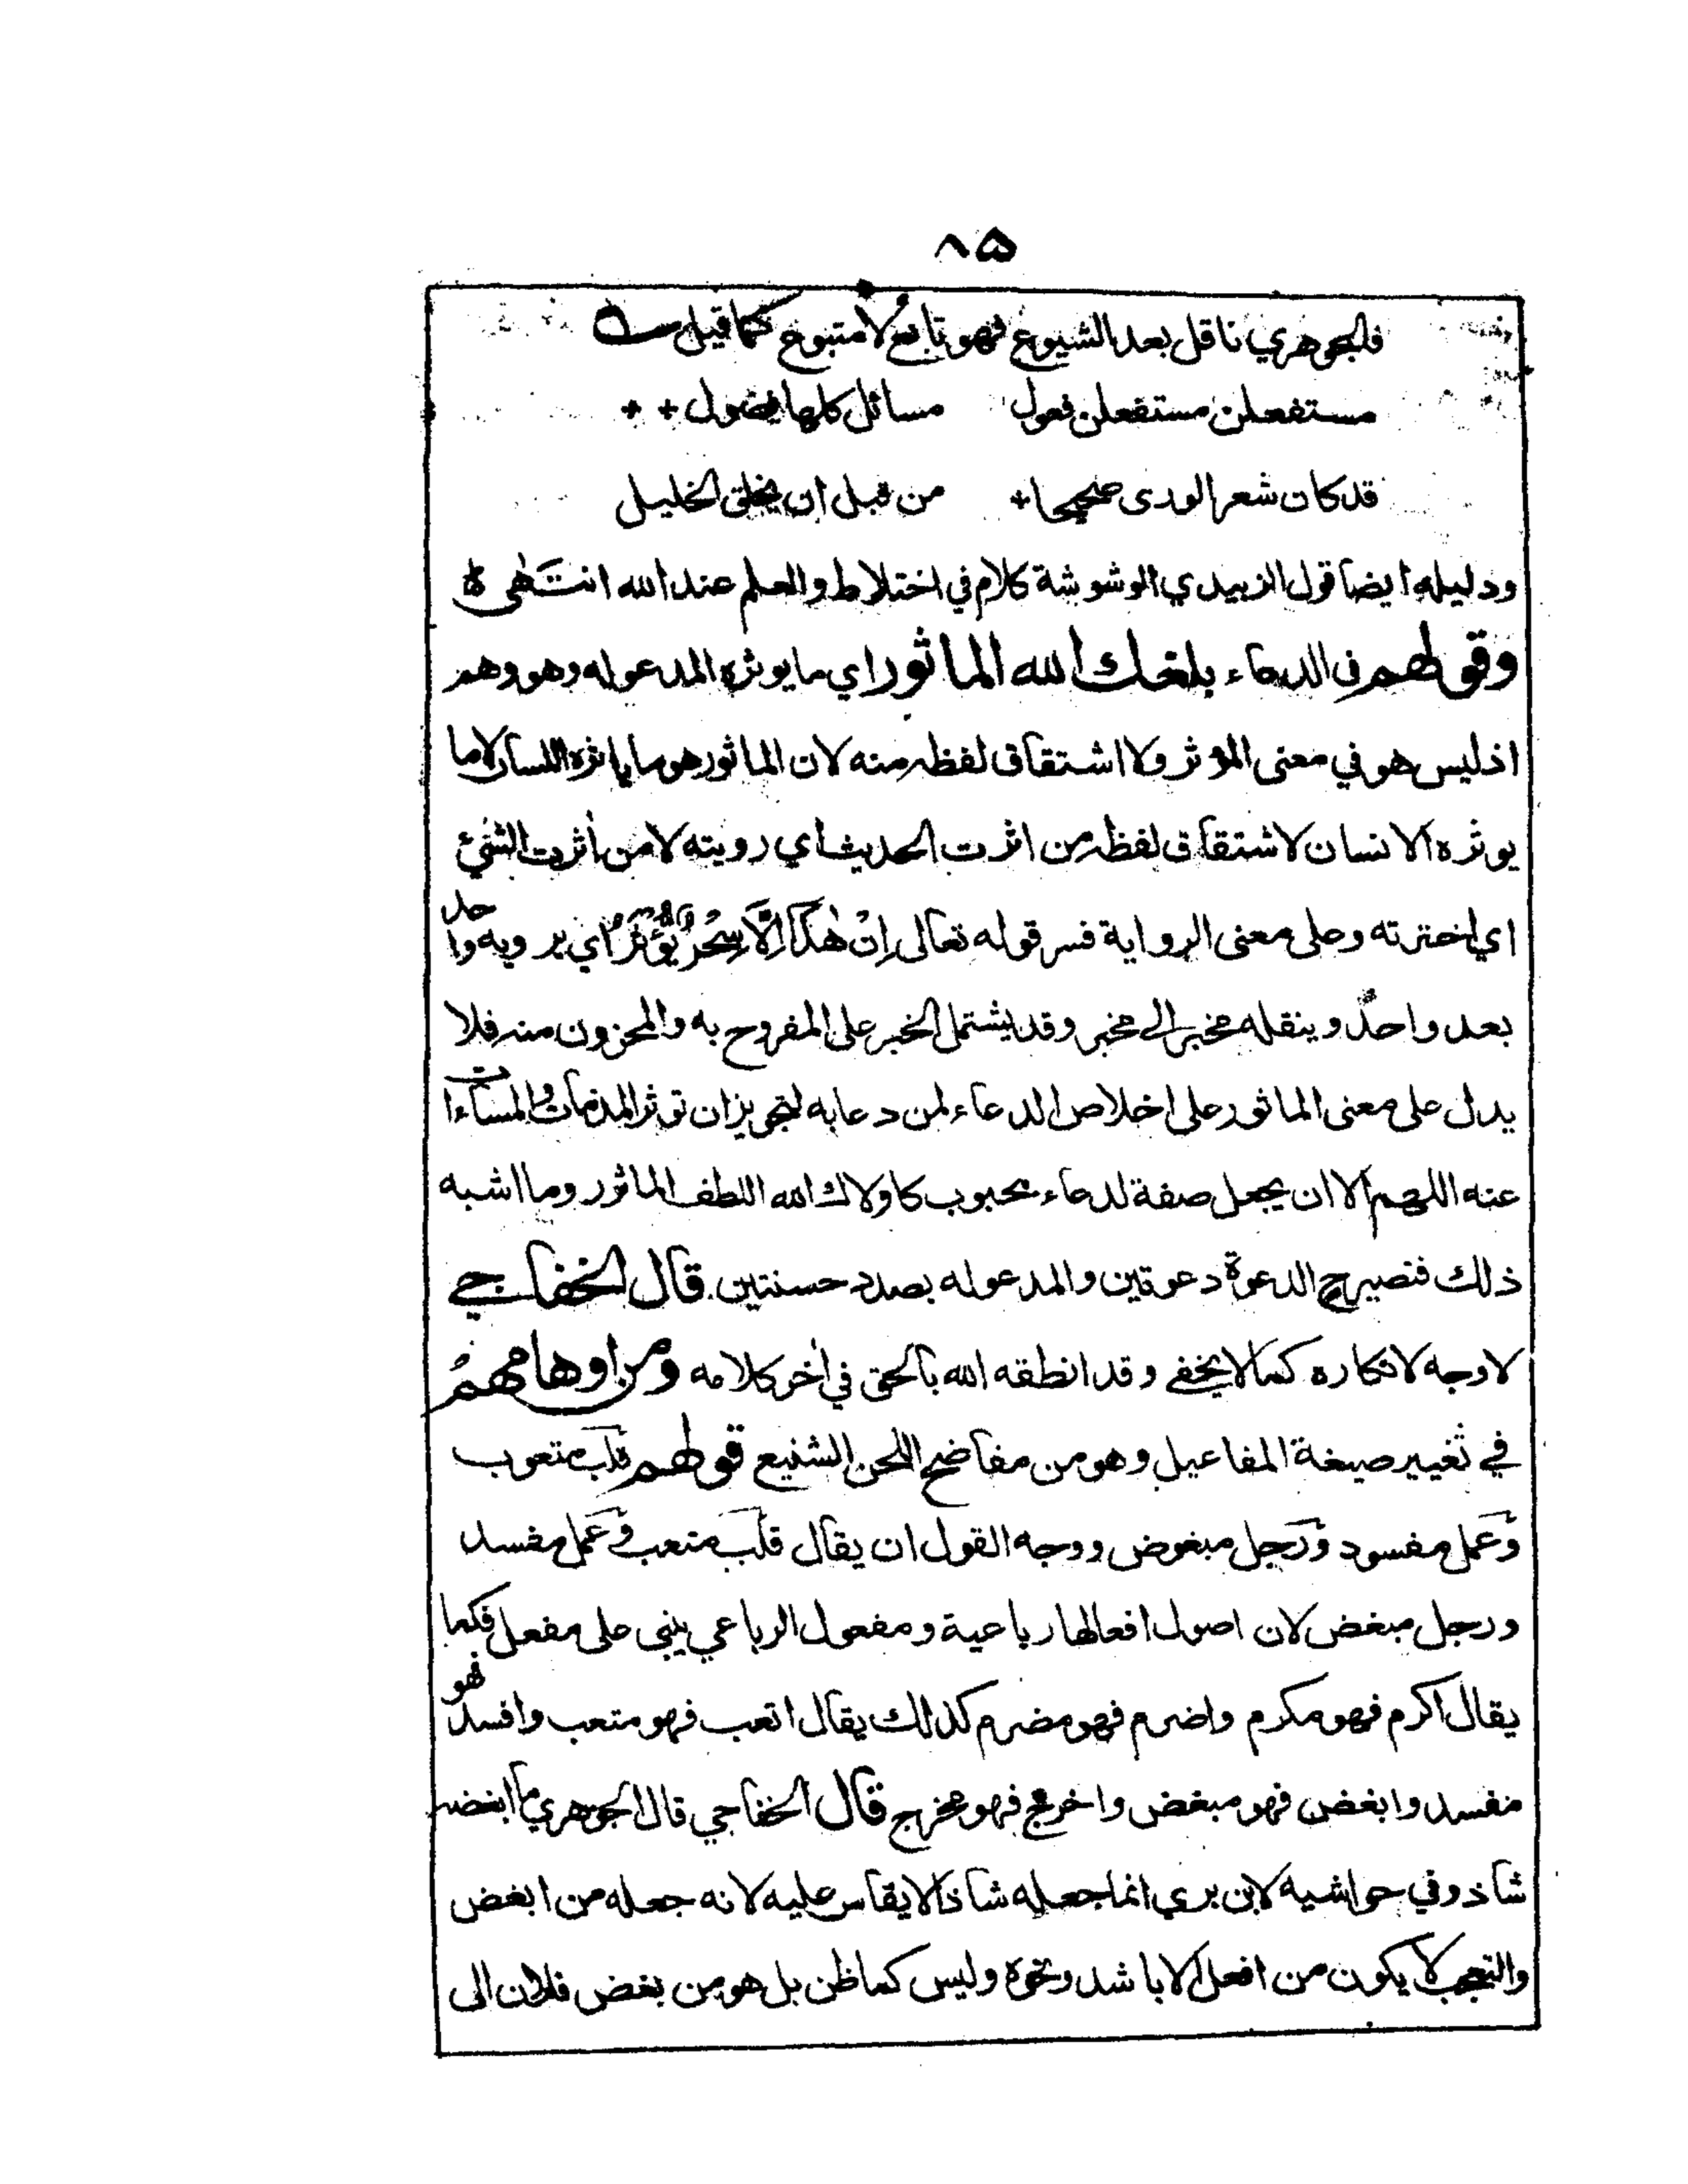 ۸۵
فالجوهري ناقل بعد الشيوع فهو تابع لا متبوع كما قيل
مستفعلن مستفعلن فعول مسائل كلها فضول + +
قد كان شعر الورى صحيحا + من قبل ان يخلق الخليل
ودليله ايضا قول الزبيدي الوشوشة كلام في اختلاط والعلم عند الله انتهى ه
وقولهم في الدعاء بلغك الله الماثور اي ما يوثره المدعو له وهو وهم
اذ ليس هو في معنى المؤثر ولا اشتقاق لفظه منه لان الماثور هو ما ياثره اللسان لا ما
يوثره الانسان لاشتقاق لفظه من اثرت الحديث اي رويته لا من أثرت الشئ
اي اخترته وعلى معنى الرواية فسر قوله تعالى اِنْ هٰذَا اِلَّا سِحْرٌ يُّؤْثَرُ اي يرويه واحد
بعد واحد وينقله مخبر الى مخبر وقد يشتمل الخبر على المفروح به والمحزون منه فلا
يدل على معنى الماثور على اخلاص الدعاء لمن دعا به لتجويز ان توثر المذمات والمساءات
عنه اللهم الا ان يجعل صفة لدعاء محبوب كاولاك الله اللطف الماثور وما اشبه
ذلك فتصير ح الدعوة دعوتين والمدعو له بصدد حسنتين قال الخفاجي
لا وجه لانكاره كما لا يخفى وقد انطقه الله بالحق في اٰخر كلامه ومن اوهامهمُ
في تغيير صيغة المفاعيل وهو من مفاضح اللحن الشنيع قولهم قلب متعوب
وعمل مفسود ورجل مبغوض ووجه القول ان يقال قلب متعب وعمل مفسد
ورجل مبغض لان اصول افعالها رباعية ومفعول الرباعي يبنى على مفعل فكما
يقال اكرم فهو مكرم واضرم فهو مضرم كذلك يقال اتعب فهو متعب وافسد فهو
مفسد وابغض فهو مبغض واخرج فهو مخرج قال الخفاجي قال الجوهري ما ابغضه
شاذ وفي حواشيه لابن بري انما جعله شاذا لا يقاس عليه لانه جعله من ابغض
والتعجب لا يكون من افعل الا باشد ونحوه وليس كما ظن بل هو من بغض فلان الى